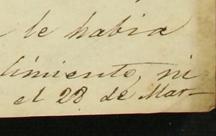 le habia
dimiento, ni
el 28 de Mar-